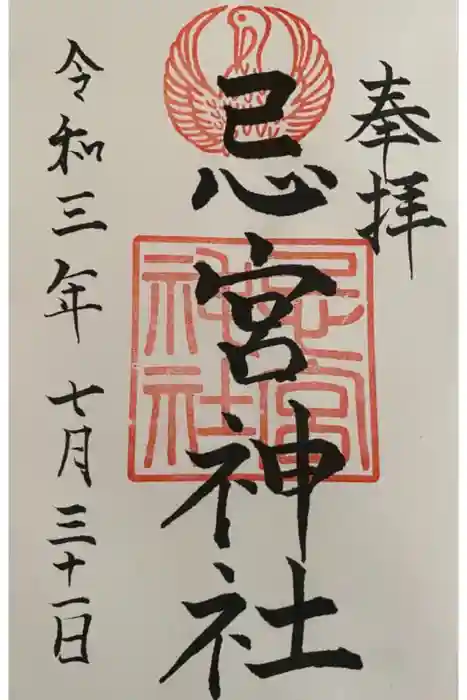 奉拝
忌宮神社
忌宮神社
令和三年 七月三十一日